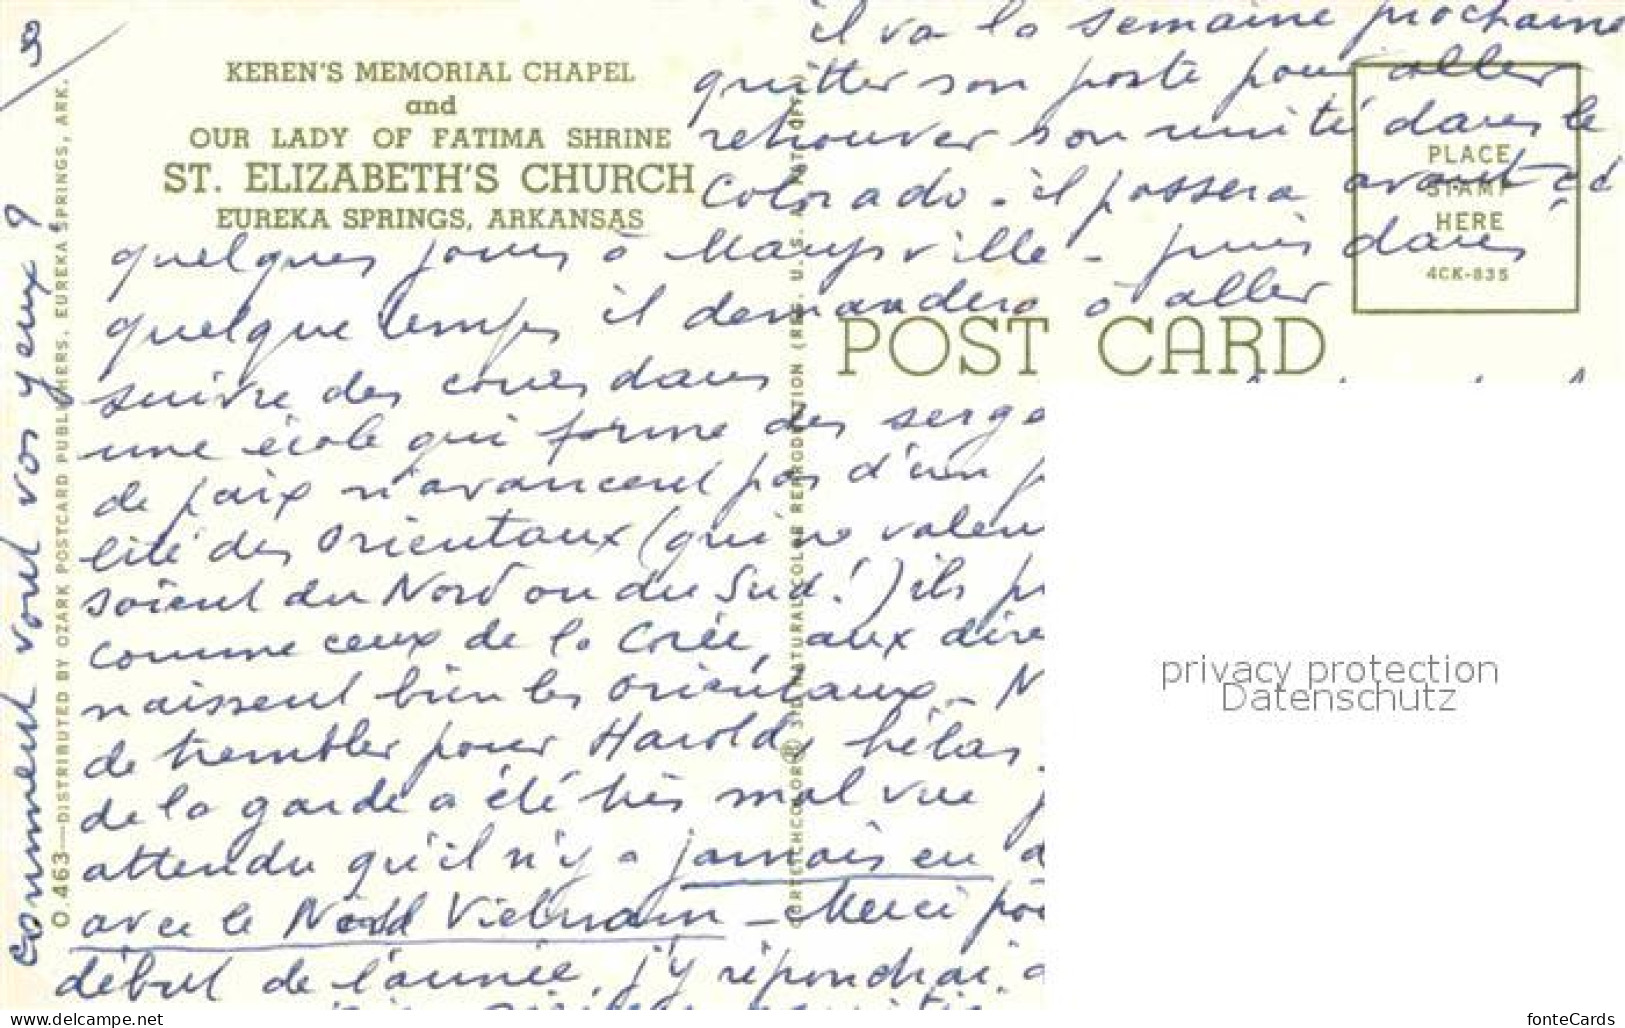 KEREN'S MEMORIAL CHAPEL
and
OUR LADY OF FATIMA SHRINE
ST. ELIZABETH'S CHURCH
EUREKA SPRINGS, ARKANSAS
il va la semaine prochaine
quitter son poste pour aller
retrouver son unité dans le
Colorado - il passera avant
quelques jours à Marysville - puis dans
quelque temps il demandera à aller
suivre des cours dans
une école qui forme des serge
de paix n'avancent pas d'un
lité des Orientaux (qui ne valen
soient du Nord ou du Sud!) ils
comme ceux de la Corée, aux dire
naissent bien les Orientaux - N
de trembler pour Harold, hélas
de la garde a été très mal vue
attendu qu'il n'y a jamais eu
avec le Nord Vietnam - Merci
début de l'année, j'y répondrai
comment vont vos yeux?
PLACE
STAMP
HERE
4CK-835
POST CARD
O.463—DISTRIBUTED BY OZARK POSTCARD PUBLISHERS, EUREKA SPRINGS, ARK.
CURTEICHCOLOR® 3-D NATURAL COLOR REPRODUCTION (REG. U.S. PAT. OFF.)
privacy protection
Datenschutz
www.delcampe.net
fonteCards